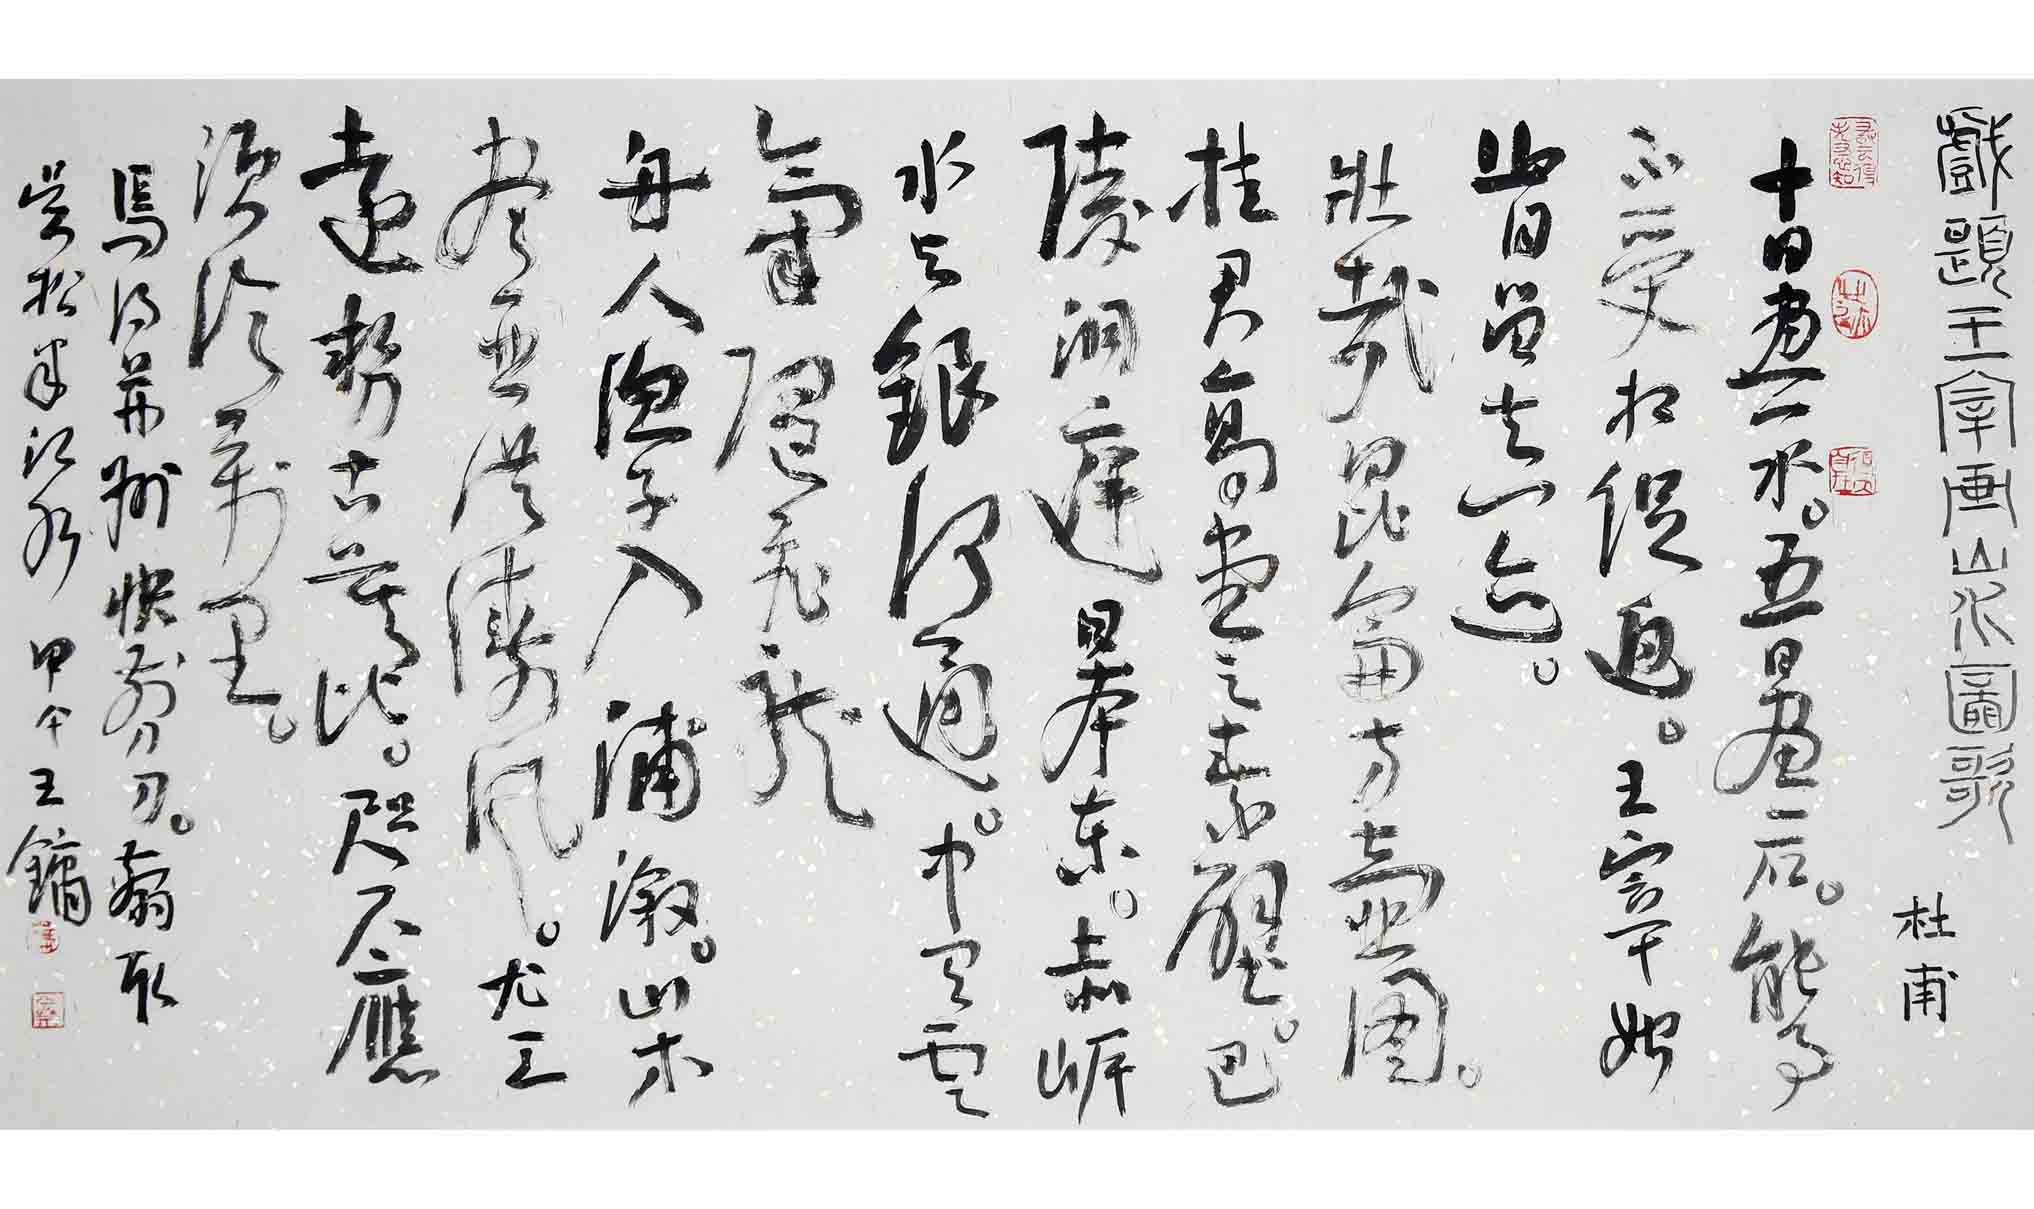 戲題王宰画山水圖歌
杜甫
十日畫一水。五日畫一石。能事
不受相促迫。王宰始
肯留真迹。
壯哉昆侖方壺图。
挂君高堂之素壁。巴
陵洞庭日本東。赤岸
水与銀河通。中有雲
氣随飛龍
舟人漁子入浦漵。山木
盡亞洪濤風。尤工
遠勢古莫比。咫尺應
須論萬里。
焉得并州快剪刀。翦取
吴松半江水 甲午王鏞